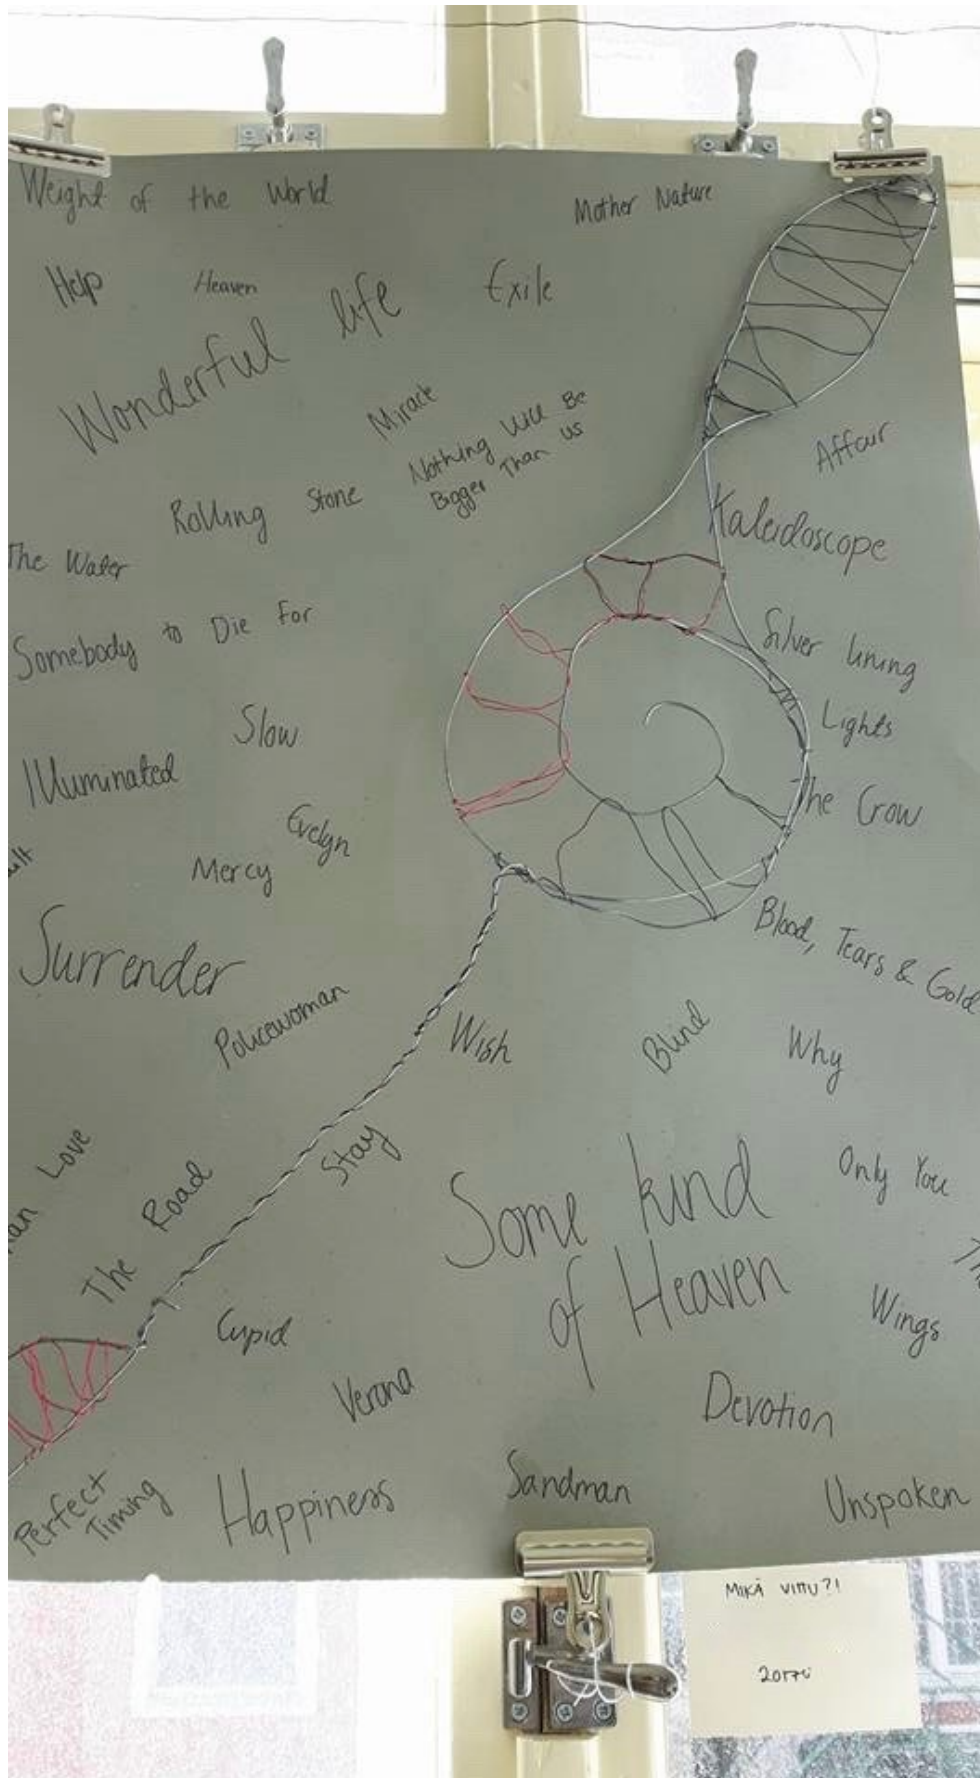 Weight of the World
Mother Nature
Help
Heaven
Wonderful life
Exile
Miracle
Nothing Will Be
Bigger Than us
Affair
Rolling Stone
Kaleidoscope
The Water
Somebody to Die For
Silver lining
Slow
Lights
Illuminated
The Crow
Evelyn
ult
Mercy
Surrender
Blood, Tears & Gold
Policewoman
Wish
Blind
Why
Love
The Road
Stay
Only You
Some kind
of Heaven
Wings
Cupid
Verona
Devotion
Perfect
Timing
Happiness
Sandman
Unspoken
MIKÄ VITTU?!